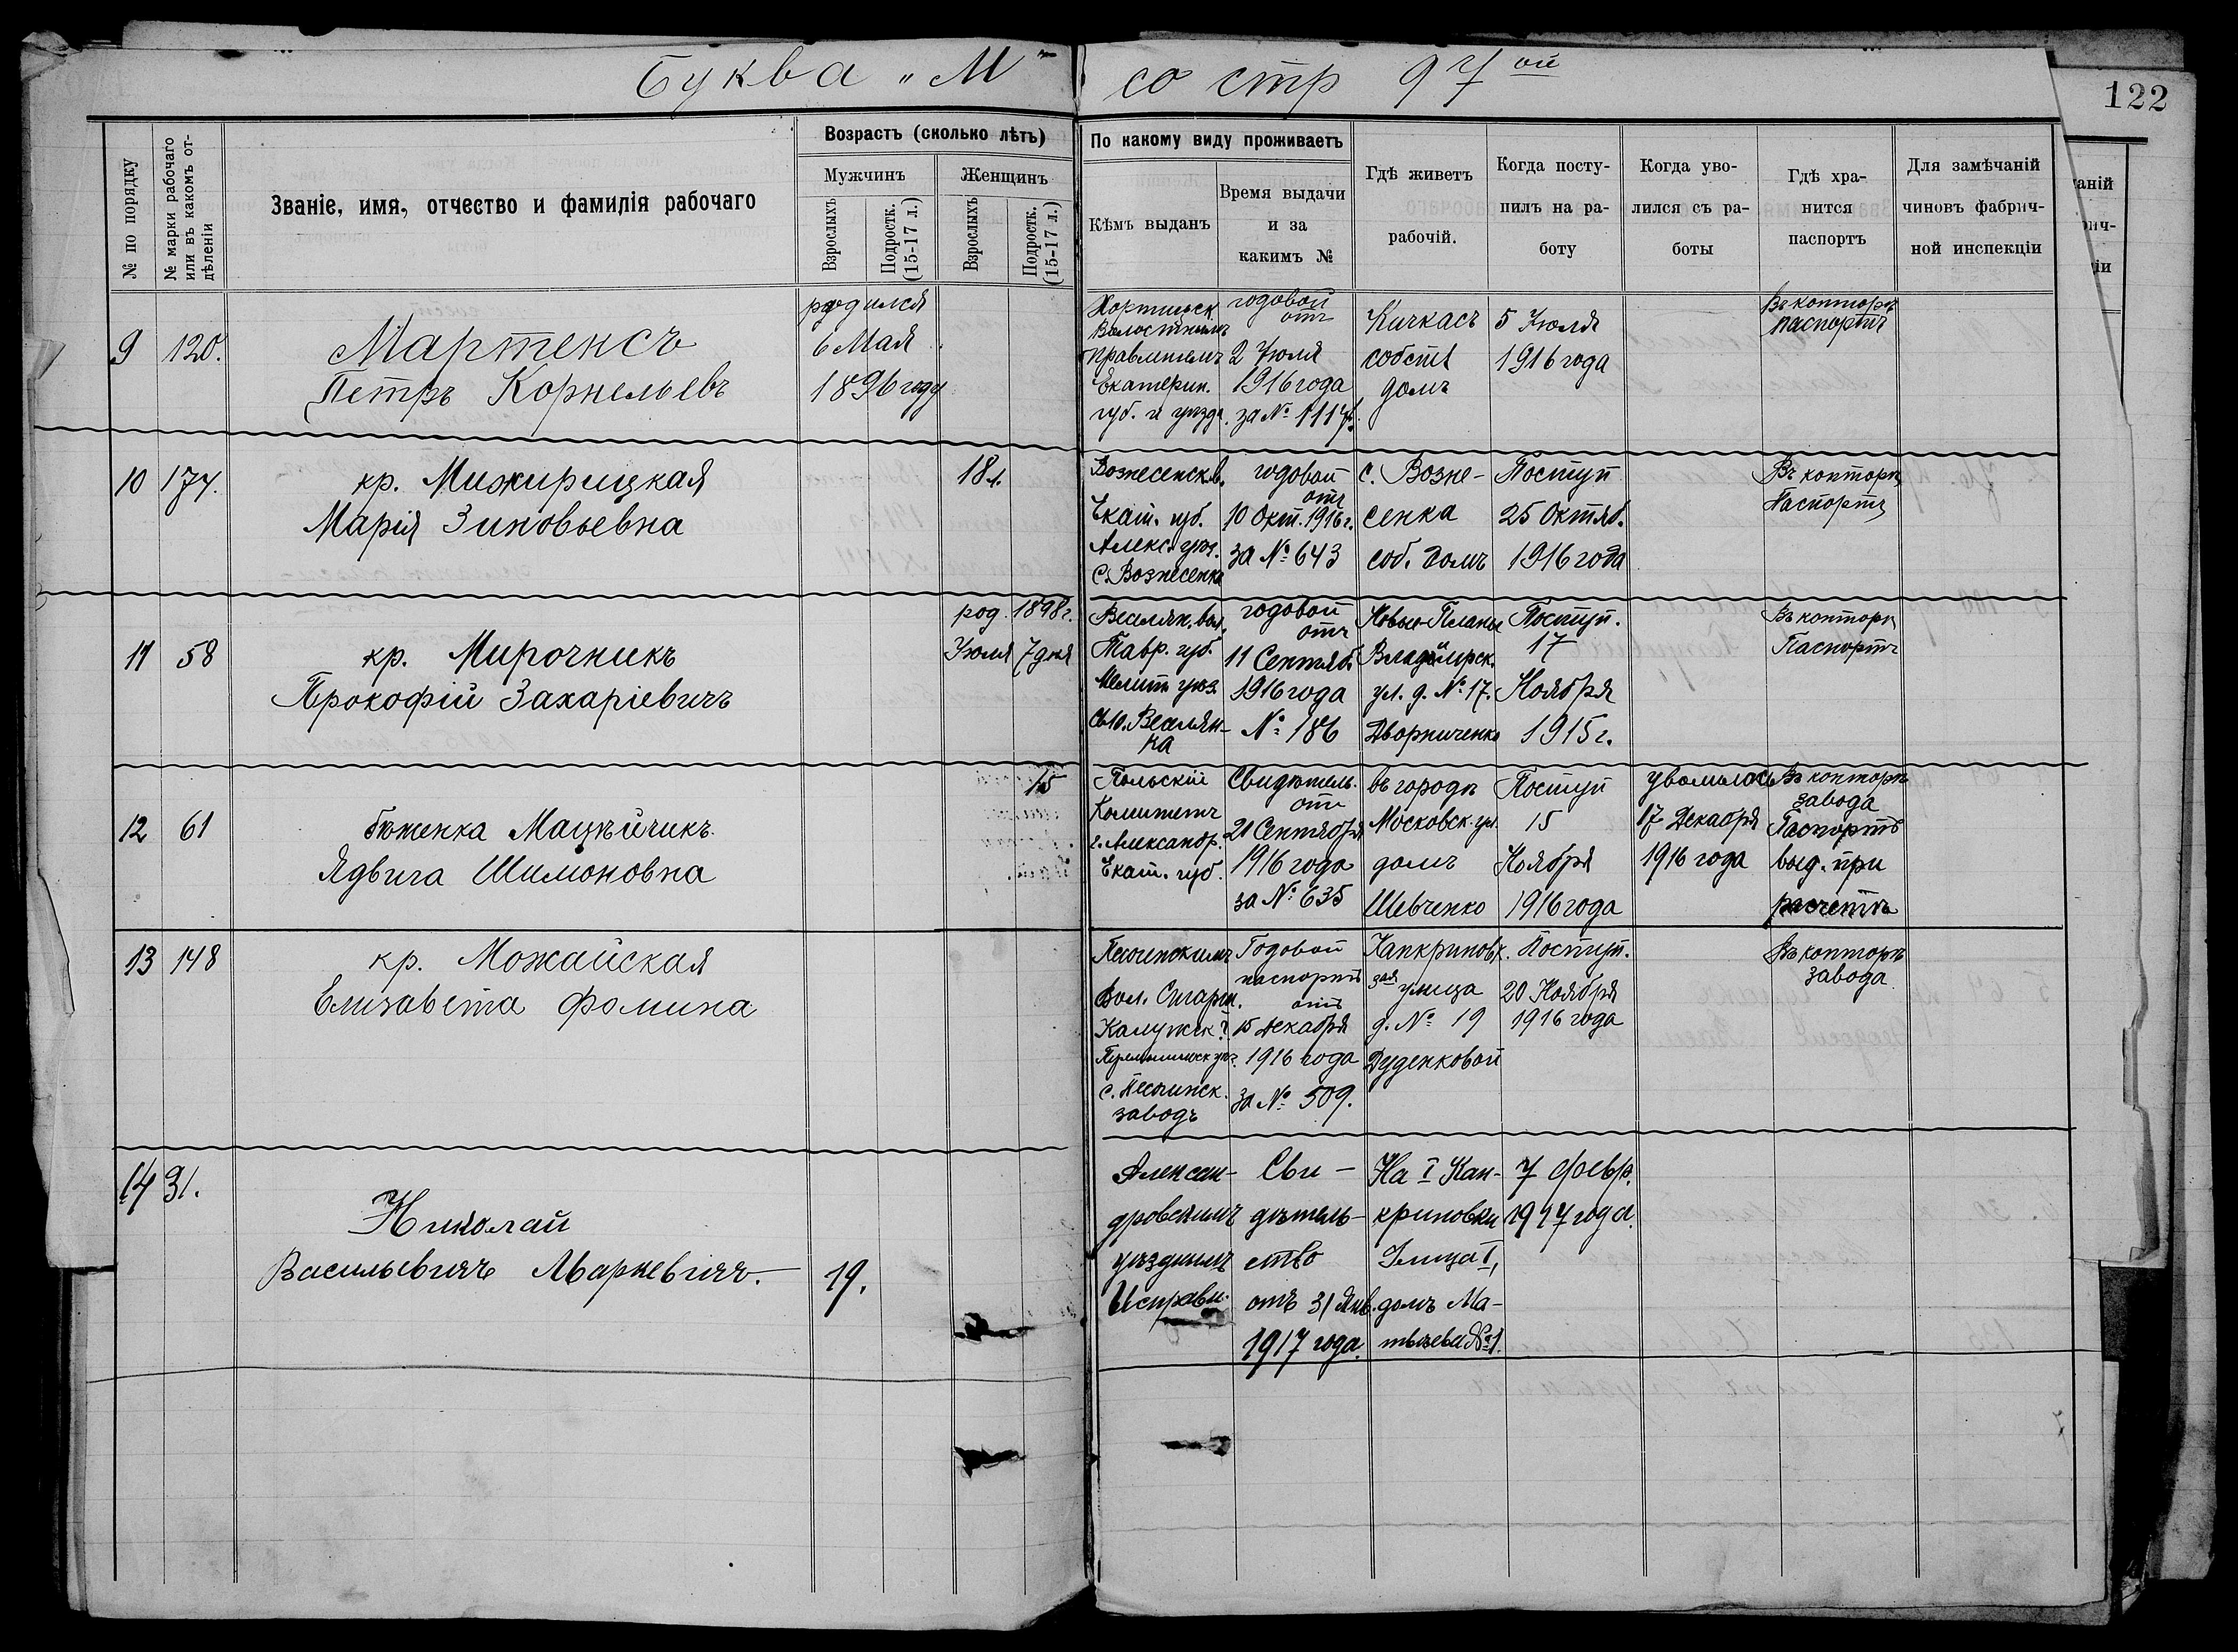 Буква „М“ со стр 97ой
122
№ по порядку
№ марки рабочаго или въ какомъ отдѣленіи
Званіе, имя, отчество и фамилія рабочаго
Возрастъ (сколько лѣтъ)
Мужчинъ
Женщинъ
Взрослыхъ
Подростк. (15-17 л.)
Взрослыхъ
Подростк. (15-17 л.)
По какому виду проживаетъ
Кѣмъ выданъ
Время выдачи
и за
какимъ №
Гдѣ живетъ
рабочій.
Когда посту-
пилъ на ра-
боту
Когда уво-
лился съ ра-
боты
Гдѣ хра-
нится
паспортъ
Для замѣчаній
чиновъ фабрич-
ной инспекціи
9
120.
Мартенсъ
Петръ Корнельевъ
родился
6 Мая
1896 году
Хортицк
Волостнымъ
Правленіемъ
Екатерин.
губ. и уѣзда.
годовой
отъ
2 Іюля
1916 года
за № 1117
Кичкасъ
собств
домъ
5 Іюля
1916 года
Въ конторѣ
паспортъ
10
174.
кр. Мижирицкая
Марія Зиновьевна
18 л.
Вознесенск в.
Екат. губ.
Алекс. уѣз.
с. Вознесенка
годовой
отъ
10 Окт. 1916 г.
за № 643
с. Возне-
сенка
соб. домъ
Поступ
25 Октяб.
1916 года
Въ конторѣ
Паспортъ
11
58
кр. Мирочникъ
Прокофій Захаріевичъ
род. 1898 г.
Іюля 7 дня
Веселян. вол.
Тавр. губ.
Мелит. уѣз.
Веселян-
ка
годовой
отъ
11 Сентяб.
1916 года
№ 186
Новые-Планы
Владимірск.
ул. д. № 17.
Дворниченко
Поступ.
17
Ноября
1915 г.
Въ конторѣ
Паспортъ
12
61
бѣженка Мацѣйчикъ
Ядвига Шимоновна
15
Польскій
Комитетъ
г. Александр.
Екат. губ.
Свидѣтель.
отъ
21 Сентября
1916 года
за № 635
въ городѣ
Московск. ул.
домъ
Шевченко
Поступ
15
Ноября
1916 года
уволилась
17 Декабря
1916 года
Въ конторѣ
завода
Паспортъ
выд. при
расчетѣ
13
148
кр. Можайская
Елизавета Фомина
Песоченскимъ
Вол.
Калужск. г.
с. Песочинск.
заводъ
Годовой
паспортъ
отъ
15 Декабря
1916 года
за № 509.
Капкриновк.
3ая улица
д. № 19
Дуденковой
Поступ.
20 Ноября
1916 года
Въ конторѣ
завода
14
31.
Николай
Васильевичъ Маркевичъ.
19.
Алексан-
дровскимъ
уѣзднымъ
Исправн.
Сви-
дѣтель-
ство
отъ 31 Янв.
1917 года.
На I Кап-
криновки
Улица I,
домъ Ма-
твѣева № 1.
7 Февр.
1917 года.